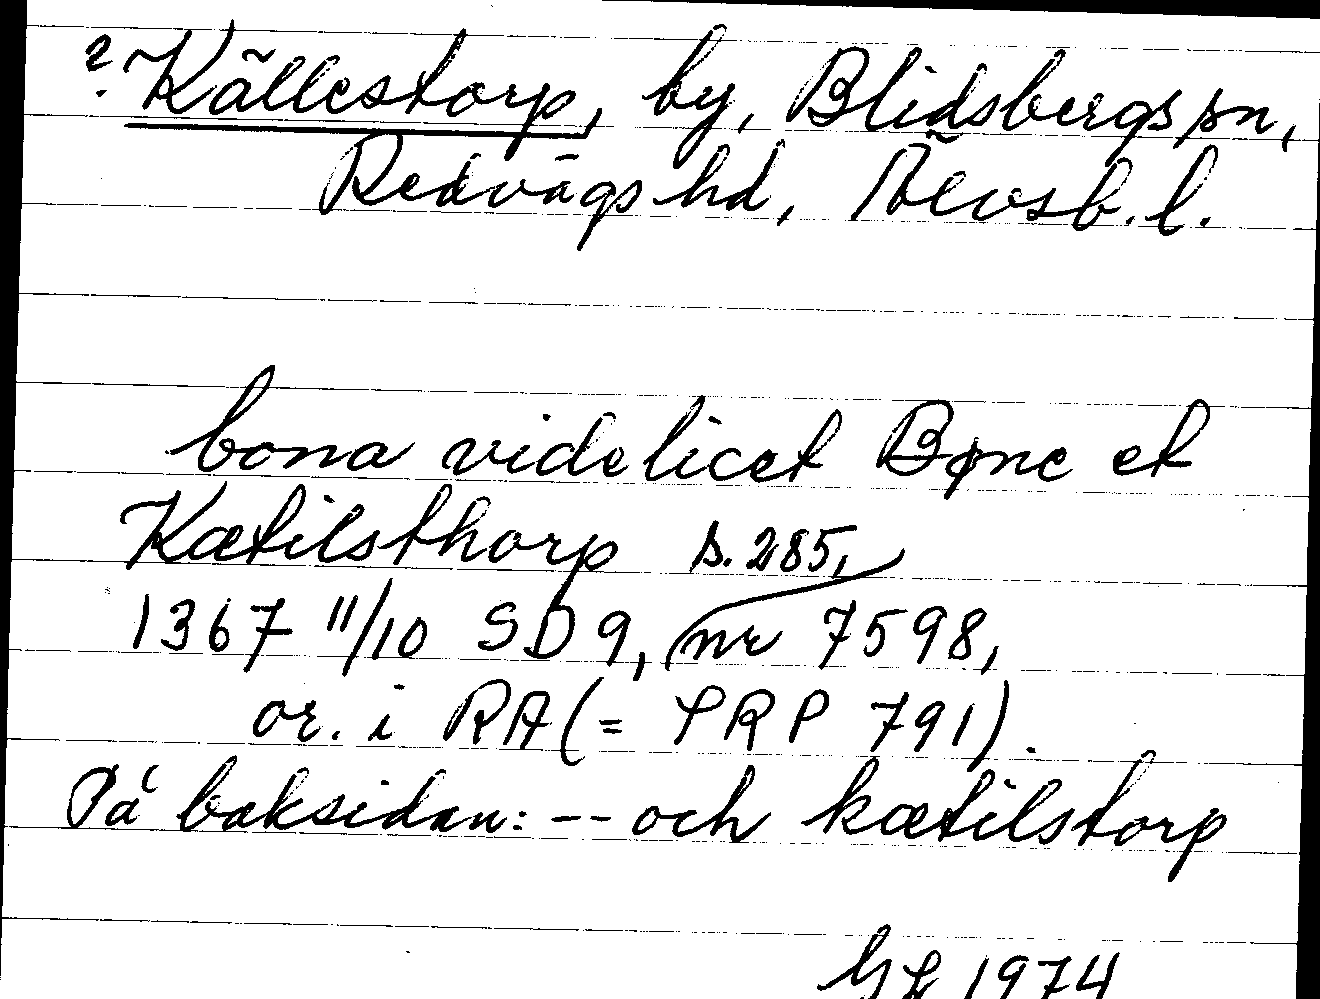 ? Källestorp, by, Blidsbergs sn,
Redvägs hd, Älvsb. l.
bona videlicet Bøne et
Kætilsthorp s. 285,
1367 11/10 SD 9, nr 7598,
or. i RA (= SRP 791).
På baksidan: -- och kætilstorp
1974